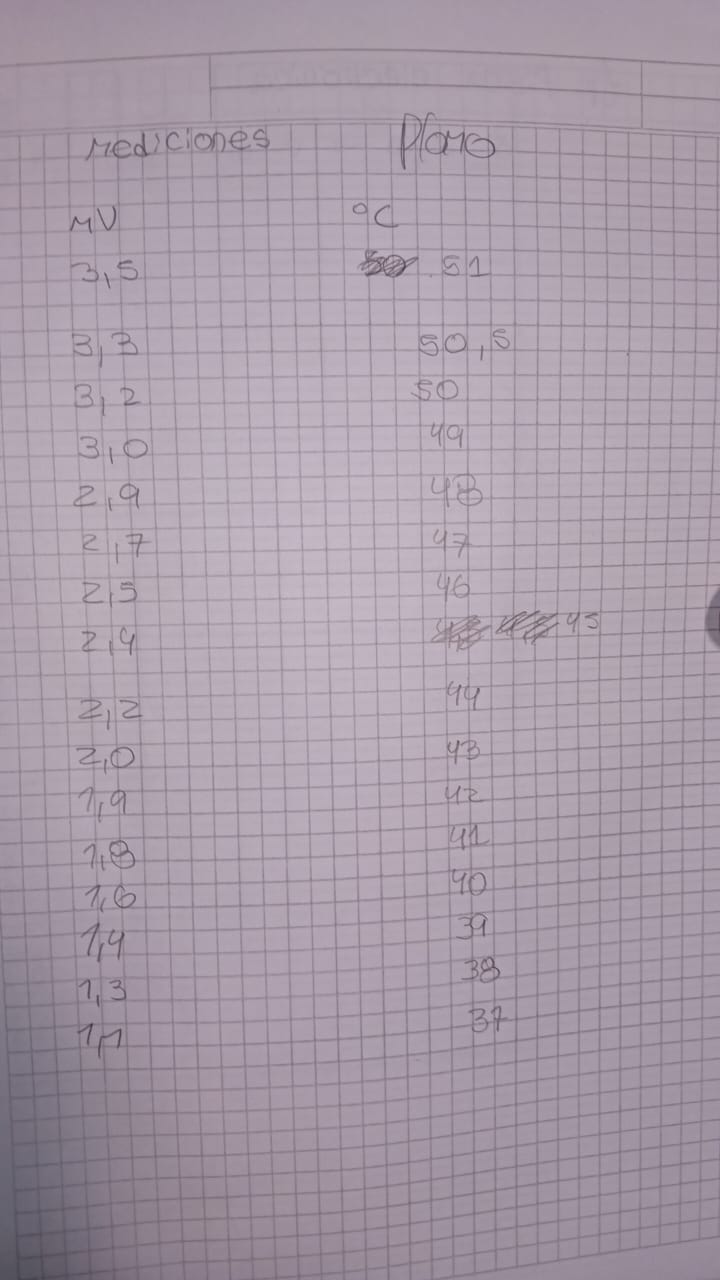 Mediciones Plomo
MV °C
3,5 51
3,3 50,5
3,2 50
3,0 49
2,9 48
2,7 47
2,5 46
2,4 45
2,2 44
2,0 43
1,9 42
1,8 41
1,6 40
1,4 39
1,3 38
1,1 37